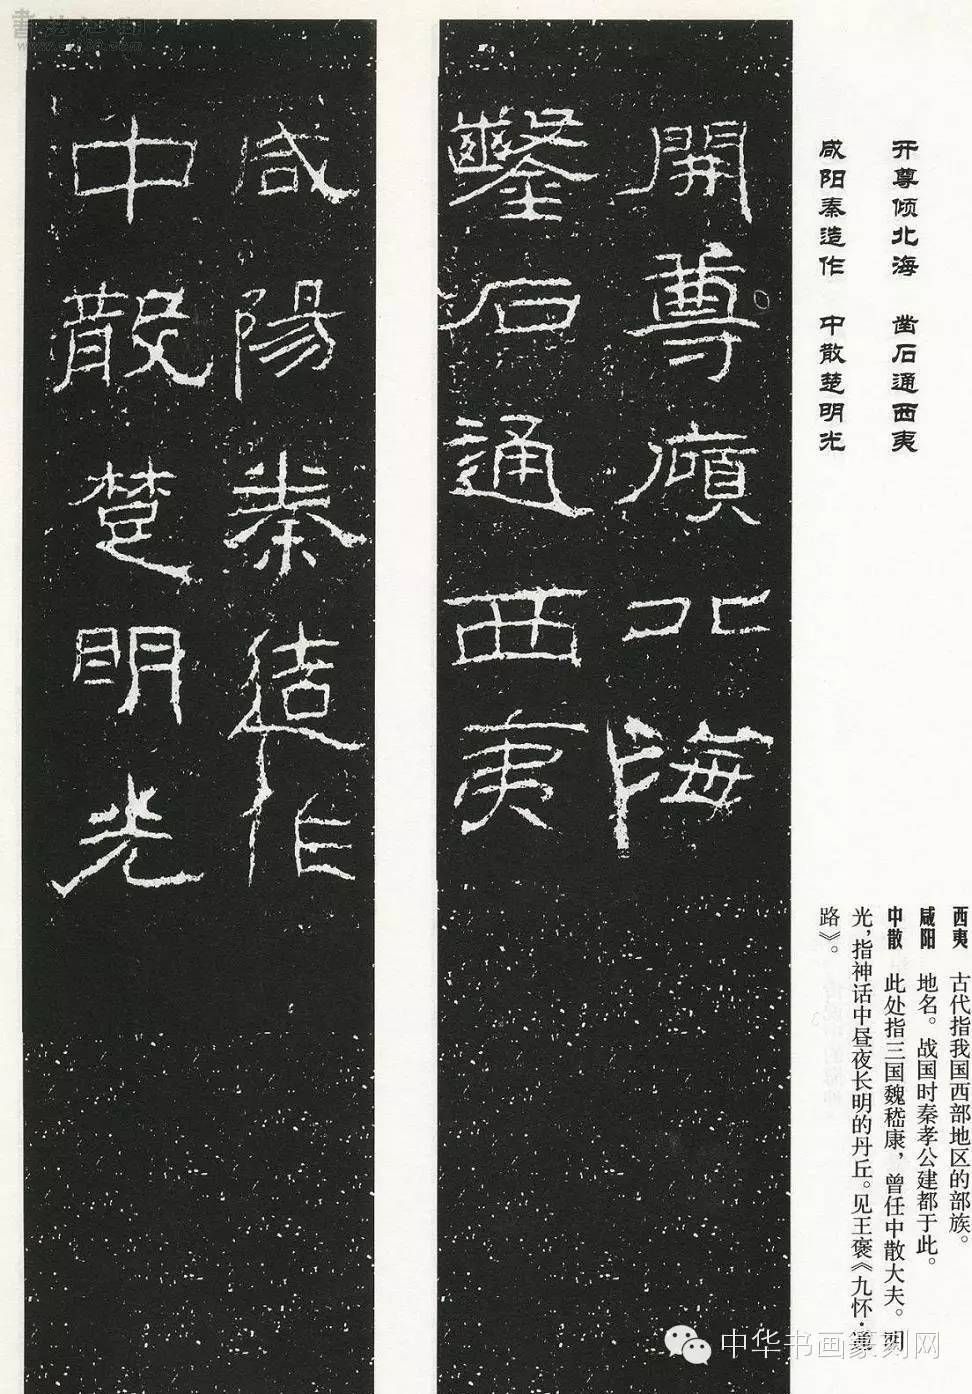 开尊倾北海 凿石通西夷
咸阳秦造作 中散楚明光
開尊傾北海
鑿石通西夷
咸陽秦造作
中散楚明光
西夷 古代指我国西部地区的部族。
咸阳 地名。战国时秦孝公建都于此。
中散 此处指三国魏嵇康，曾任中散大夫。明
光，指神话中昼夜长明的丹丘。见王褒《九怀·通
路》。
中华书画篆刻网